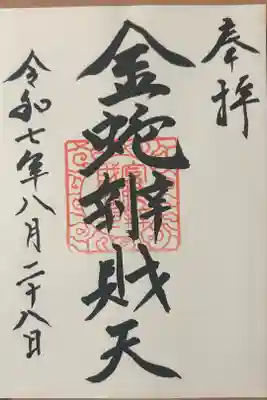 奉拝
金蛇辨財天
令和七年八月二十八日